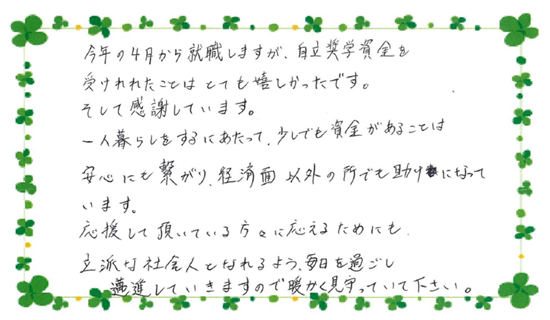 今年の4月から就職しますが、自立奨学資金を
受けれれたことはとても嬉しかったです。
そして感謝しています。
一人暮らしをするにあたって、少しでも資金があることは
安心にも繋がり、経済面以外の所でも助けになって
います。
応援して頂いている方々に応えるためにも、
立派な社会人となれるよう、毎日を過ごし
邁進していきますので暖かく見守っていて下さい。